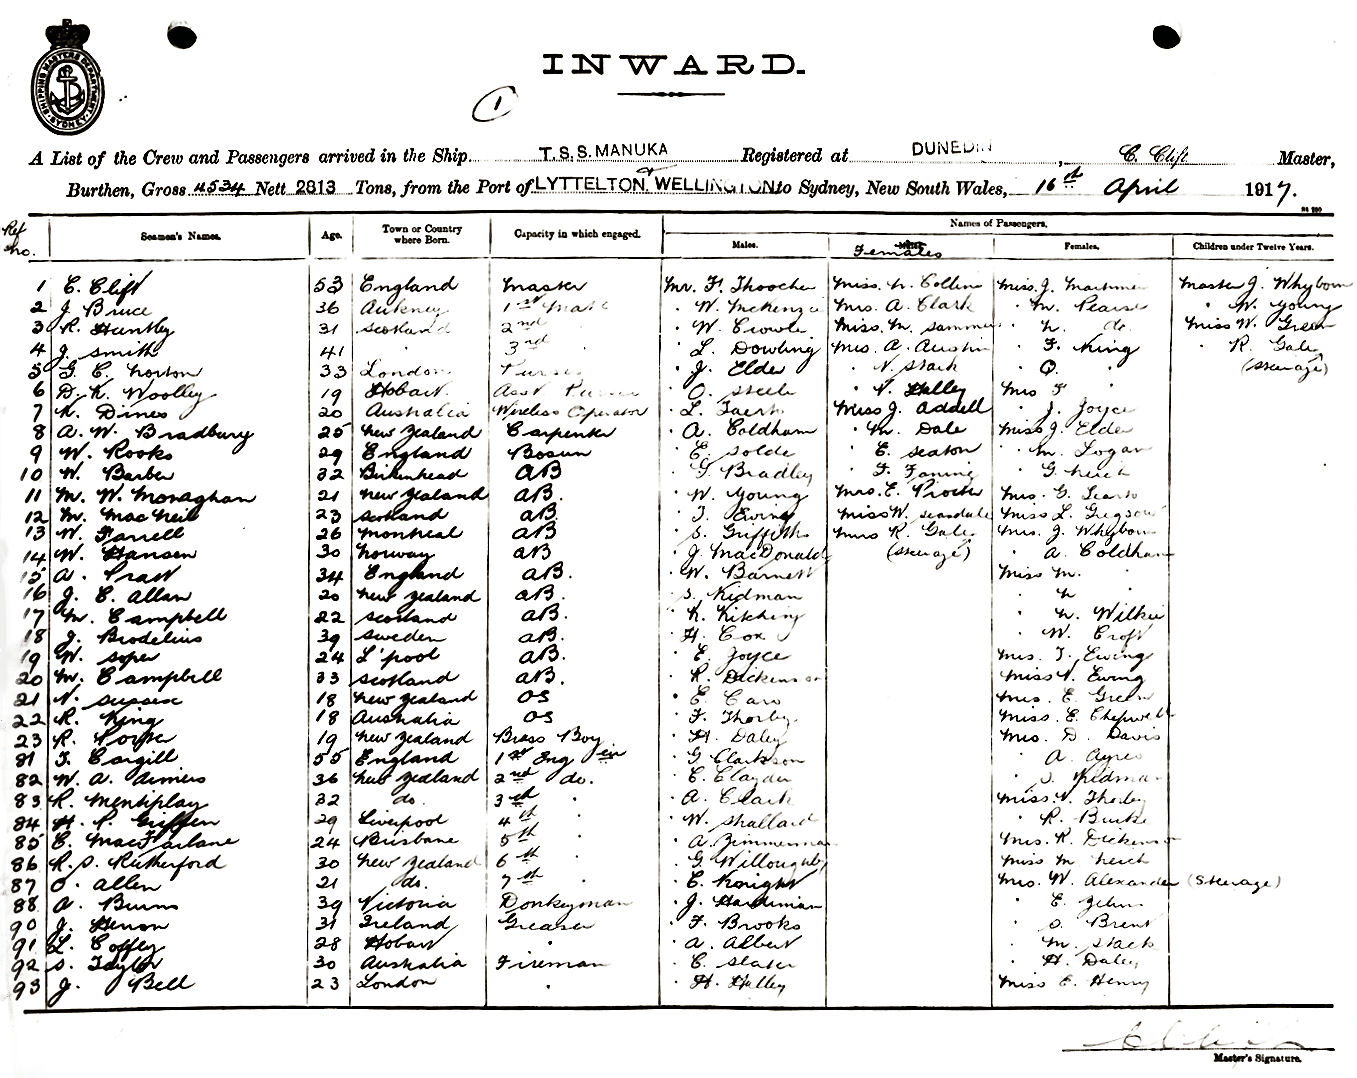 SHIPPING MASTERS DEPARTMENT SYDNEY
INWARD.
1
A List of the Crew and Passengers arrived in the Ship T.S.S. MANUKA Registered at DUNEDIN, C. Clift Master,
Burthen, Gross 4534 Nett 2813 Tons, from the Port of LYTTELTON & WELLINGTON to Sydney, New South Wales, 16th April 1917.
Ref No. Seamen's Names. Age. Town or Country where Born. Capacity in which engaged. Names of Passengers.
Males. Females Females. Children under Twelve Years.
1 C. Clift 53 England Master Mr. F. Miss. N. Collins Miss. J. Master J. Whyborn
2 J. Bruce 36 1st Mate " W. McKenzie Mrs. A. Clark " M. Pearse " W. Young
3 R. Huntley 31 Scotland 2nd " W. Crowle Miss. M. " N. do. Miss W. Green
4 J. Smith 41 " 3rd " L. Dowling Mrs. A. Austin " F. King " R. Gale
5 G. E. Norton 33 London Purser " J. Elder " N. Stack " O. " (Steerage)
6 D. K. Woolley 19 Hobart Asst Purser " O. Steele " V. Helley Mrs F "
7 K. Dines 20 Australia Wireless Operator " L. Miss J. Addell " J. Joyce
8 A. W. Bradbury 25 New Zealand Carpenter " A. Coldham " M. Dale Miss J. Elder
9 W. Rooks 29 England Bosun " E. Solde " E. Seaton " M. Logan
10 W. Barber 32 Birkenhead AB " F. Bradley " F. Faning " G. Neich
11 M. W. Monaghan 21 New Zealand AB. " W. Young Mrs. E. Procter Mrs. G.
12 M. MacNeil 23 Scotland AB. " T. Ewing Miss W. Miss L. Gregson
13 W. Farrell 26 Montreal AB " S. Griffiths Mrs R. Gale Mrs. J. Whyborn
14 W. Hansen 30 Norway AB " J. MacDonald (Steerage) " A. Coldham
15 A. Pratt 34 England AB. " W. Barnett Miss M. "
16 J. E. Allan 20 New Zealand AB. " S. Kidman " N "
17 M. Campbell 22 Scotland AB. " K. Kitching " N. Wilkie
18 J. Brodelius 39 Sweden AB. " H. Cox " W. Croft
19 W. Soper 24 L'pool AB. " E. Joyce Mrs. T. Ewing
20 M. Campbell 33 Scotland AB. " R. Dickenson Miss V. Ewing
21 N. Sussex 18 New Zealand OS " E. Caro Mrs. E. Green
22 R. King 18 Australia OS " F. Thorby. Miss. E.
23 R. 19 New Zealand Brass Boy " H. Daley Mrs. D. Davis
81 T. Cargill 55 England 1st Eng " G Clarkson " A. Ayres
82 W. A. Aimers 36 New Zealand 2nd do. " C. Clayden " S. Kidman
83 R. Mentiplay 32 do. 3rd " " A. Clark Miss V. Thorby
84 H. P. Griffen 29 Liverpool 4th " " W. Shallard " R. Burke
85 E. MacFarlane 24 Brisbane 5th " " A. Zimmerman Mrs. R. Dickenson
86 R. S. Rutherford 30 New Zealand 6th " " G. Willoughby Miss M Neich
87 O. Allen 21 do. 7th " " E. Knight Mrs. W. Alexander (Steerage)
88 A. Burns 39 Victoria Donkeyman " J. Hardiman " E.
90 J. Heron 31 Ireland Greaser " F. Brooks " S. Brent
91 L. Coffey 28 Hobart " " A. Albert " M. Stack
92 S. Taylor 30 Australia Fireman " C. Slater " H. Daley
93 J. Bell 23 London " " H. Helley Miss E. Henry
C Clift
Master's Signature.